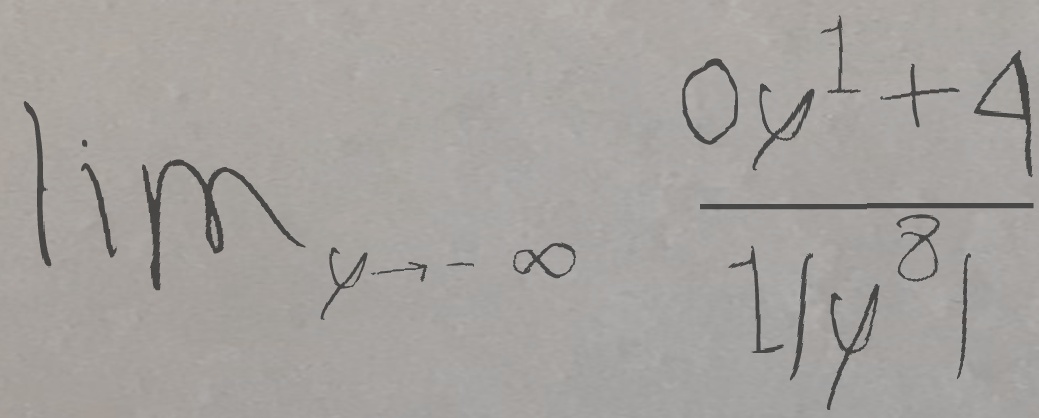 lim y→-∞ (0y^1+4)/(1|y^8|)